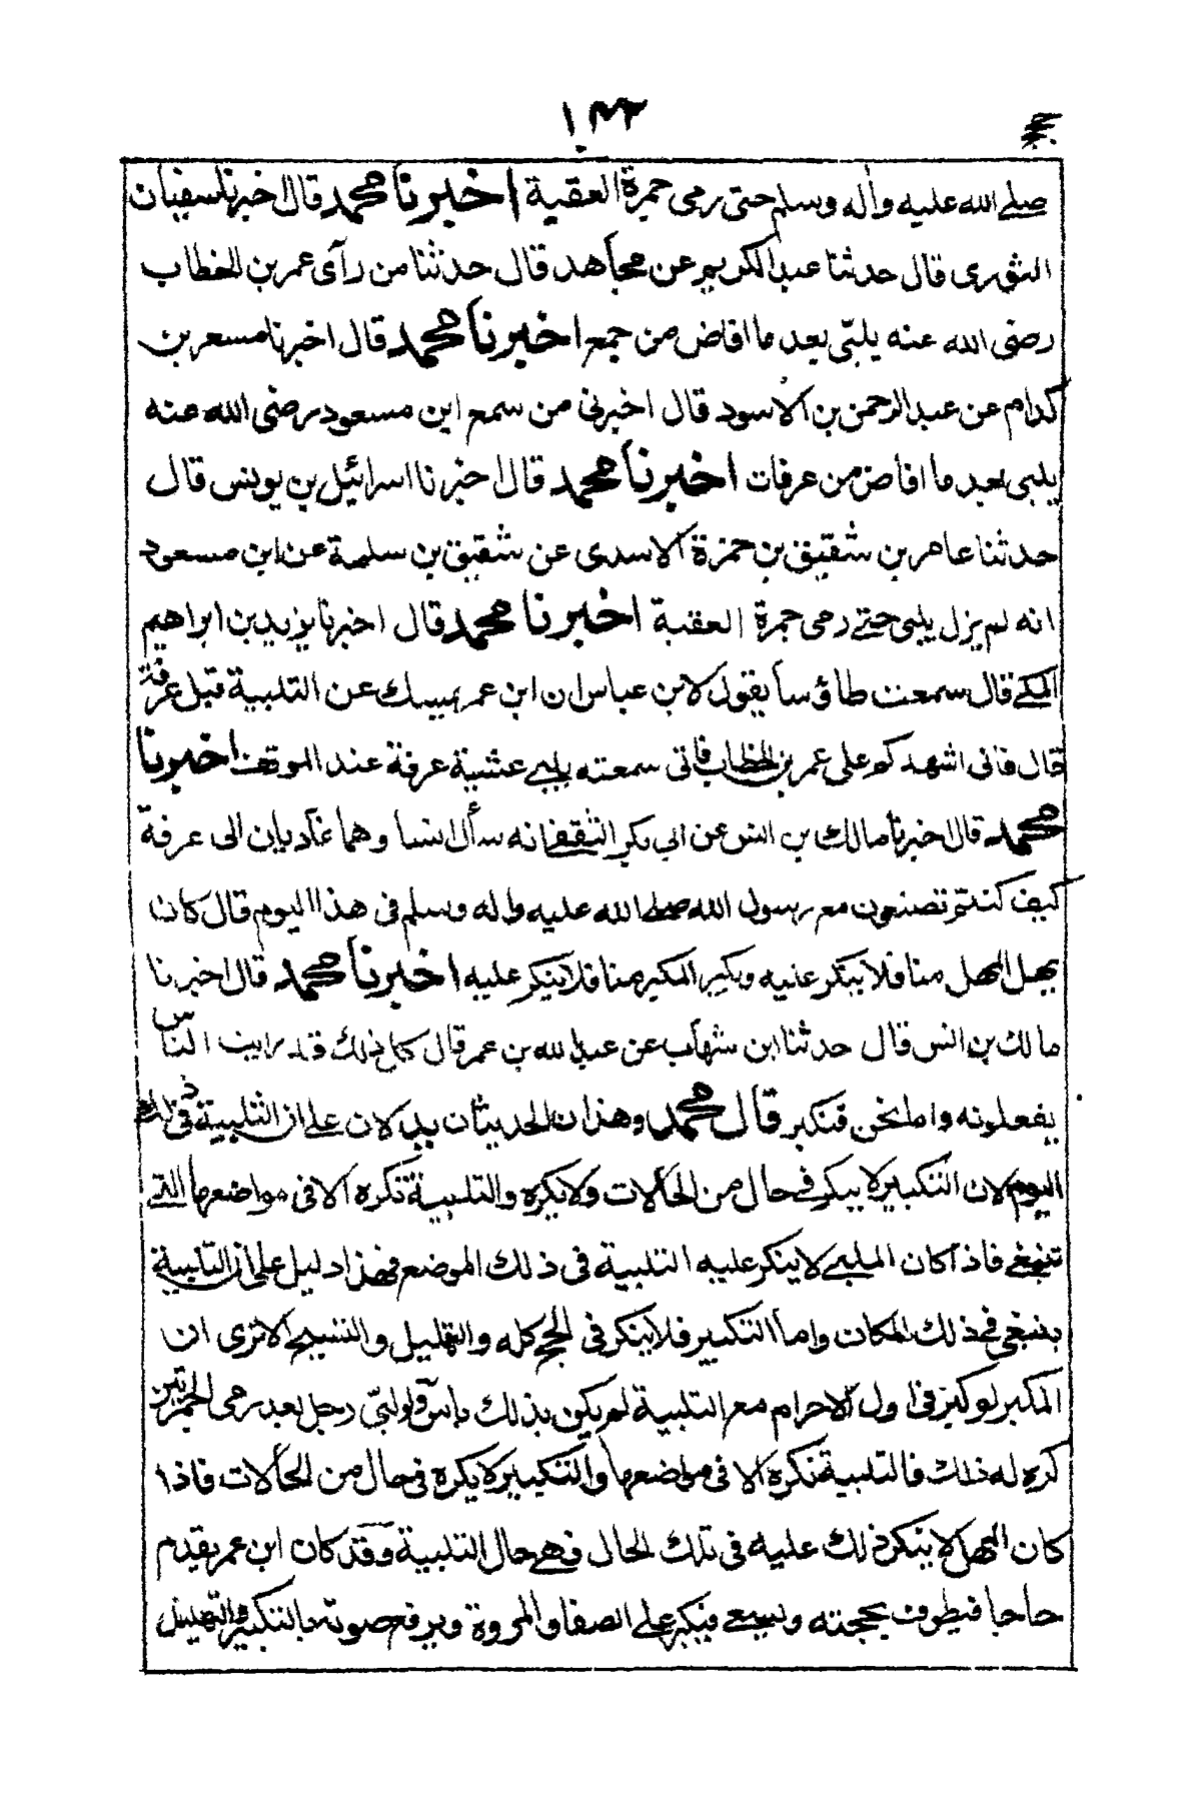 ١٤٢
صلى الله عليه وآله وسلم حتى رمى جمرة العقبة اخبرنا محمد قال اخبرنا سفيان
الثوري قال حدثنا عبد الكريم عن مجاهد قال حدثنا من رآى عمر بن الخطاب
رضى الله عنه يلبّى بعد ما افاض من جمع اخبرنا محمد قال اخبرنا مسعر بن
كدام عن عبد الرحمن بن الاسود قال اخبرنى من سمع ابن مسعود رضى الله عنه
يلبى بعد ما افاض من عرفات اخبرنا محمد قال اخبرنا اسرائيل بن يونس قال
حدثنا عامر بن شقيق بن حمزة الاسدى عن شقيق بن سلمة عن ابن مسعود
انه لم يزل يلبى حتى رمى جمرة العقبة اخبرنا محمد قال اخبرنا يزيد بن ابراهيم
المكى قال سمعت طاؤسا يقول لابن عباس ان ابن عمر يمسك عن التلبية قبل عرفة
قال فانى اشهدكم على عمر بن الخطاب فانى سمعته يلبى عشية عرفة عند الموقف اخبرنا
محمد قال اخبرنا مالك بن انس عن ابى بكر الثقفى انه سأل انسا وهما غاديان الى عرفة
كيف كنتم تصنعون مع رسول الله صلى الله عليه واله وسلم فى هذا اليوم قال كان
يهل المهل منا فلا ينكر عليه ويكبر المكبر منا فلا ينكر عليه اخبرنا محمد قال اخبرنا
مالك بن انس قال حدثنا ابن شهاب عن عبد الله بن عمر قال كل ذلك قد رايت الناس
يفعلونه واما نحن فنكبر قال محمد وهذان الحديثان يدلان على ان التلبية فى ذلك
اليوم لان التكبير لا ينكر فى حال من الحالات ولا يكره والتلبية تكره الا فى مواضعها التى
تنبغى فاذا كان الملبى لا ينكر عليه التلبية فى ذلك الموضع فهذا دليل على ان التلبية
ينبغى فى ذلك المكان واما التكبير فلا ينكر فى الحج كله والتهليل والتسبيح الا ترى ان
المكبر لو كبر فى اول الاحرام مع التلبية لم يكن بذلك باس ولو لبّى رجل بعد رمى الجمرتين
كره له ذلك فالتلبية تكره الا فى مواضعها والتكبير لا يكره فى حال من الحالات فاذا
كان المهل لا ينكر ذلك عليه فى تلك الحال فهى حال التلبية وقد كان ابن عمر يقدم
حاجا فيطوف بحجته ويسعى فيكبر على الصفا والمروة ويرفع صوته بالتكبير والتهليل